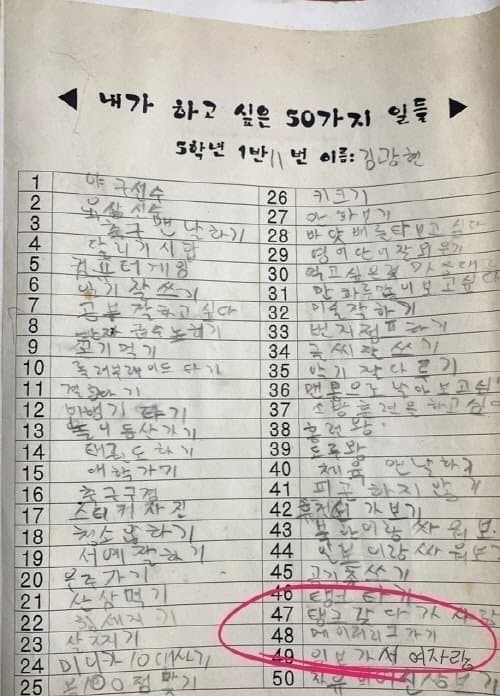 ◀ 내가 하고 싶은 50가지 일들 ▶
5학년 1반 11번 이름: 김광현
1 야구선수
2 육상선수
3 축구 맨날하기
4 달리기 시합
5 컴퓨터게임
6 일기 잘쓰기
7 공부 잘하고 싶다
8
9 고기먹기
10 롤러브레이드 타기
11
12 비행기 타기
13 놀이동산가기
14 태권도하기
15 유학가기
16 축구구경
17 스티커 사진
18 청소 잘하기
19 서예 잘하기
20 온도가기
21 산삼먹기
22 힘세지기
23 살찌기
24 미니카 10대사기
25 100점 맞기
26 키크기
27
28 바닷배 타보고 싶다
29 영어단어 잘외우기
30 먹고싶은것
31 만화 보고싶
32 미술 잘하기
33 번지점프하기
34 글씨 잘쓰기
35 악기 잘다르기
36 맨몸으로 날아보고싶
37 소방훈련을 하고 싶
38 훌련왕
39 도로왕
40 체육 맨날하기
41 피곤하지 않기
42 가보기
43 북한이랑 싸워보
44 일본이랑 싸워보
45 공기총쏘기
46 탱크타기
47 탱크 갔다가 사람
48 메이저리그가기
49 일본가서 여자랑
50 자유